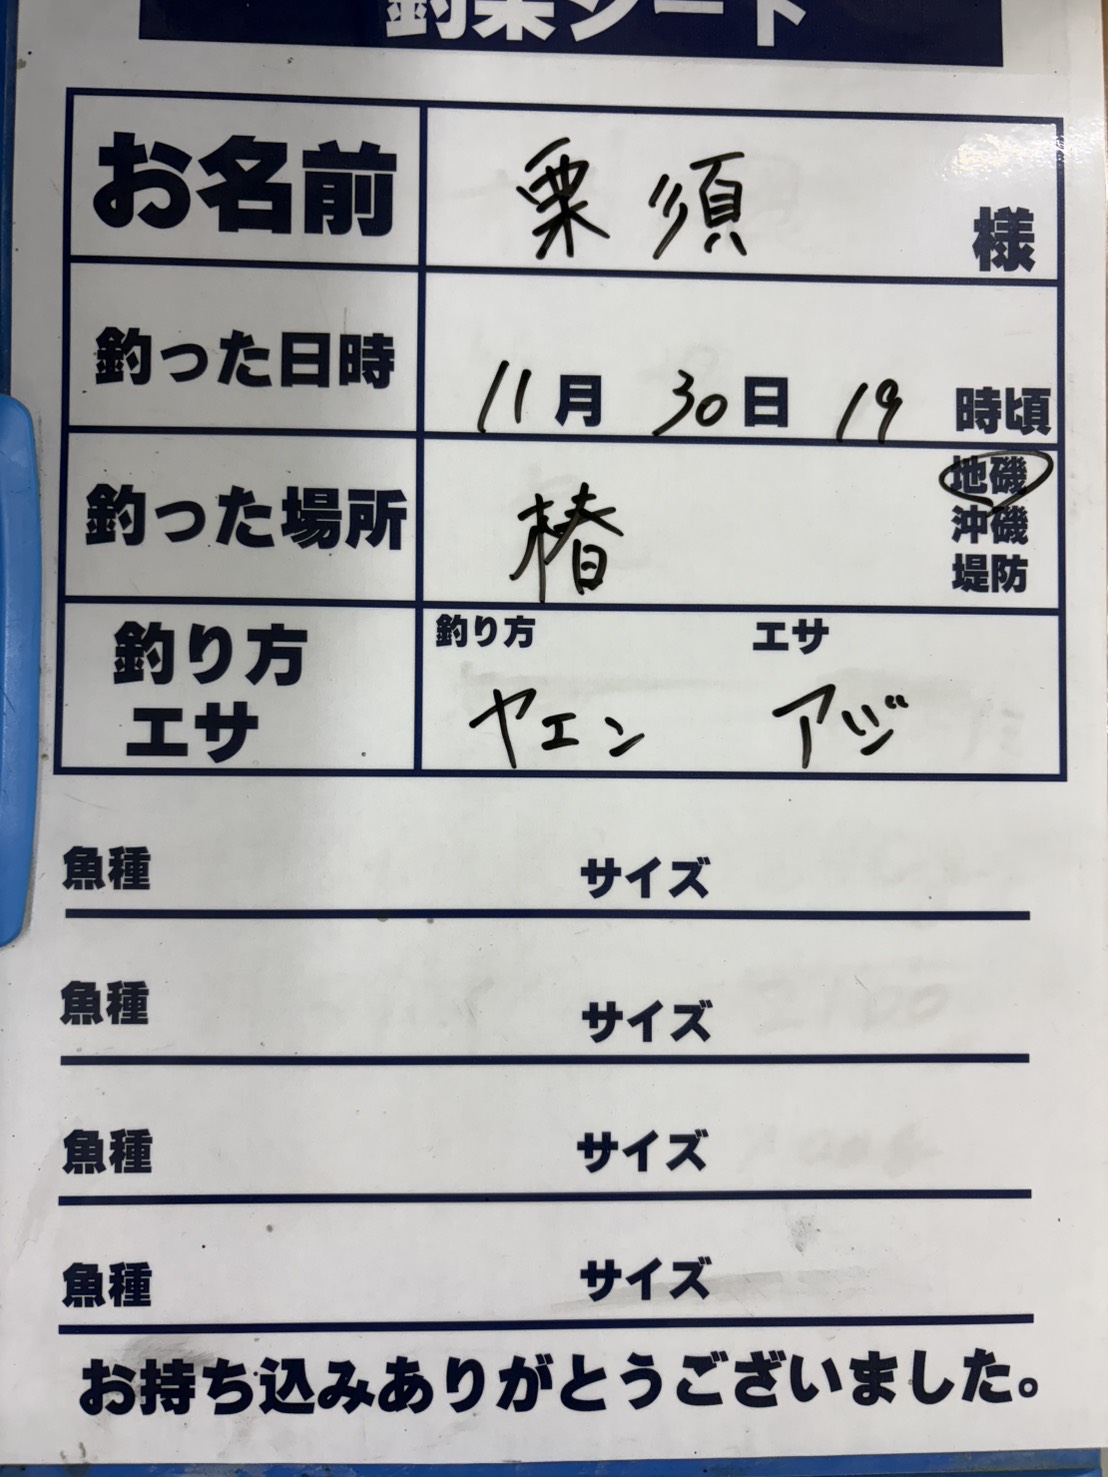 釣果シート
お名前 栗須 様
釣った日時 11月30日19時頃
釣った場所 椿 地磯
沖磯
堤防
釣り方 エサ
釣り方 エサ
ヤエン アジ
魚種 サイズ
魚種 サイズ
魚種 サイズ
魚種 サイズ
お持ち込みありがとうございました。